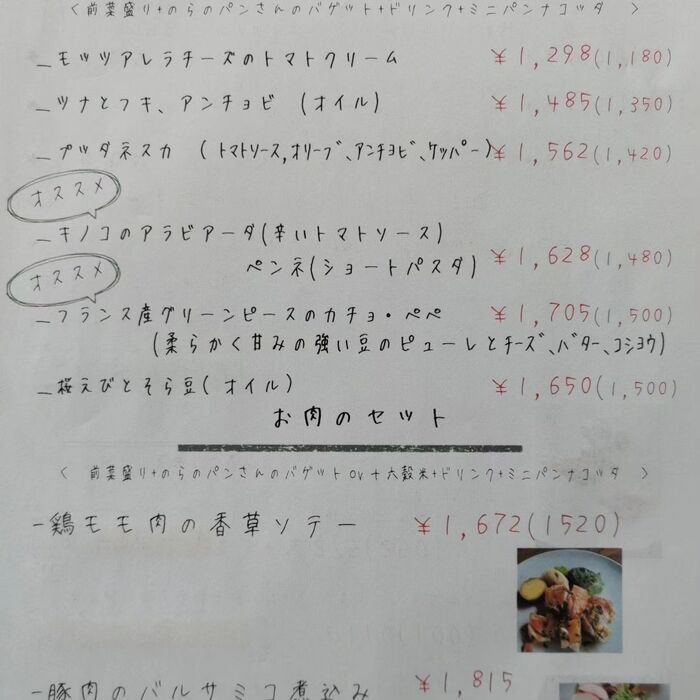 〈 前菜盛り+のらのパンさんのバゲット+ドリンク+ミニパンナコッタ 〉
_モッツアレラチーズのトマトクリーム ¥1,298(1,180)
_ツナとフキ、アンチョビ (オイル) ¥1,485(1,350)
_プッタネスカ (トマトソース,オリーブ、アンチョビ、ケッパー) ¥1,562(1,420)
オススメ
_キノコのアラビアータ(辛いトマトソース)
ペンネ(ショートパスタ) ¥1,628(1,480)
オススメ
_フランス産グリーンピースのカチョ・ペペ ¥1,705(1,500)
(柔らかく甘みの強い豆のピューレとチーズ、バター、コショウ)
_桜えびとそら豆(オイル) ¥1,650(1,500)
お肉のセット
〈 前菜盛り+のらのパンさんのバゲット or 十六穀米+ドリンク+ミニパンナコッタ 〉
-鶏モモ肉の香草ソテー ¥1,672(1520)
-豚肉のバルサミコ煮込み ¥1,815